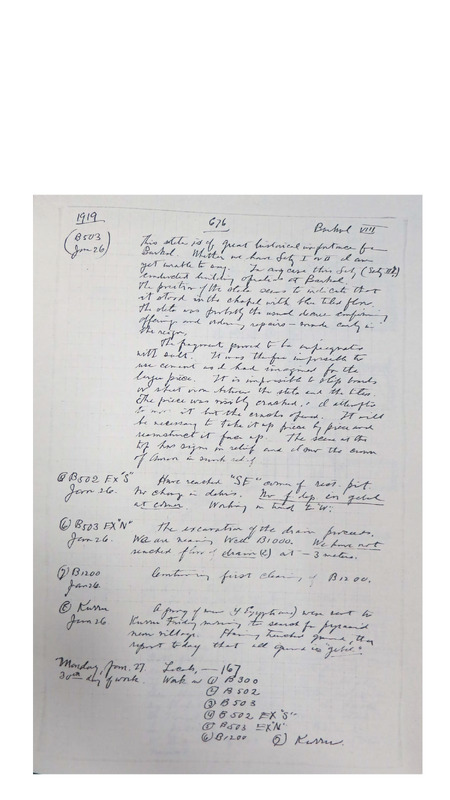 1919
676
Barkal VIII
(B503
Jan 26)
This stela is of great historical importance for
Barkal. Whether we have Sety I or II I am
yet unable to say. In any case this Sety (Sety II?)
conducted building operations at Barkal.
The position of the stela seems to indicate that
it stood in the chapel with the tiled floor.
The stela was probably the usual decree confirming
offerings and ordering repairs - made early in
the reign.
The fragment proved to be impregnated
with salt. It was therefore impossible to
use cement as I had imagined for the
larger piece. It is impossible to slip boards
or sheet iron between the stela and the tiles.
The piece was mostly crushed. I attempted
to move it but the cracks opened. It will
be necessary to take it up piece by piece and
reconstruct it face up. The scene at the
top has signs in relief and the crown
of Amon in sunk relief
B502 EX "S"
Jan 26.
Have reached "SE" corner of rest. pit.
No change in debris. No f dep. on gebel
at corner. Working in hard E-W.
(6) B503 EX "N"
Jan 26.
The excavation of the drain proceeds.
We are nearing Well B1000. We have not
reached floor of drain (2) at -3 metres.
(7) B1200
Jan 26.
Continuing first clearing of B1200.
(8) Kurru
Jan 26
A gang of men (4 Egyptians) were sent to
Kurru Friday morning to search for pyramid
near village. Having trenched ground, they
report today that all ground is "gebel".
Monday, Jan. 27. Locals, - 167
30th day of work. Work on (1) B 300
(2) B 502
(3) B 503
(4) B 502 EX "S"
(5) B503 EX "N"
(6) B1200 (7) Kurru.